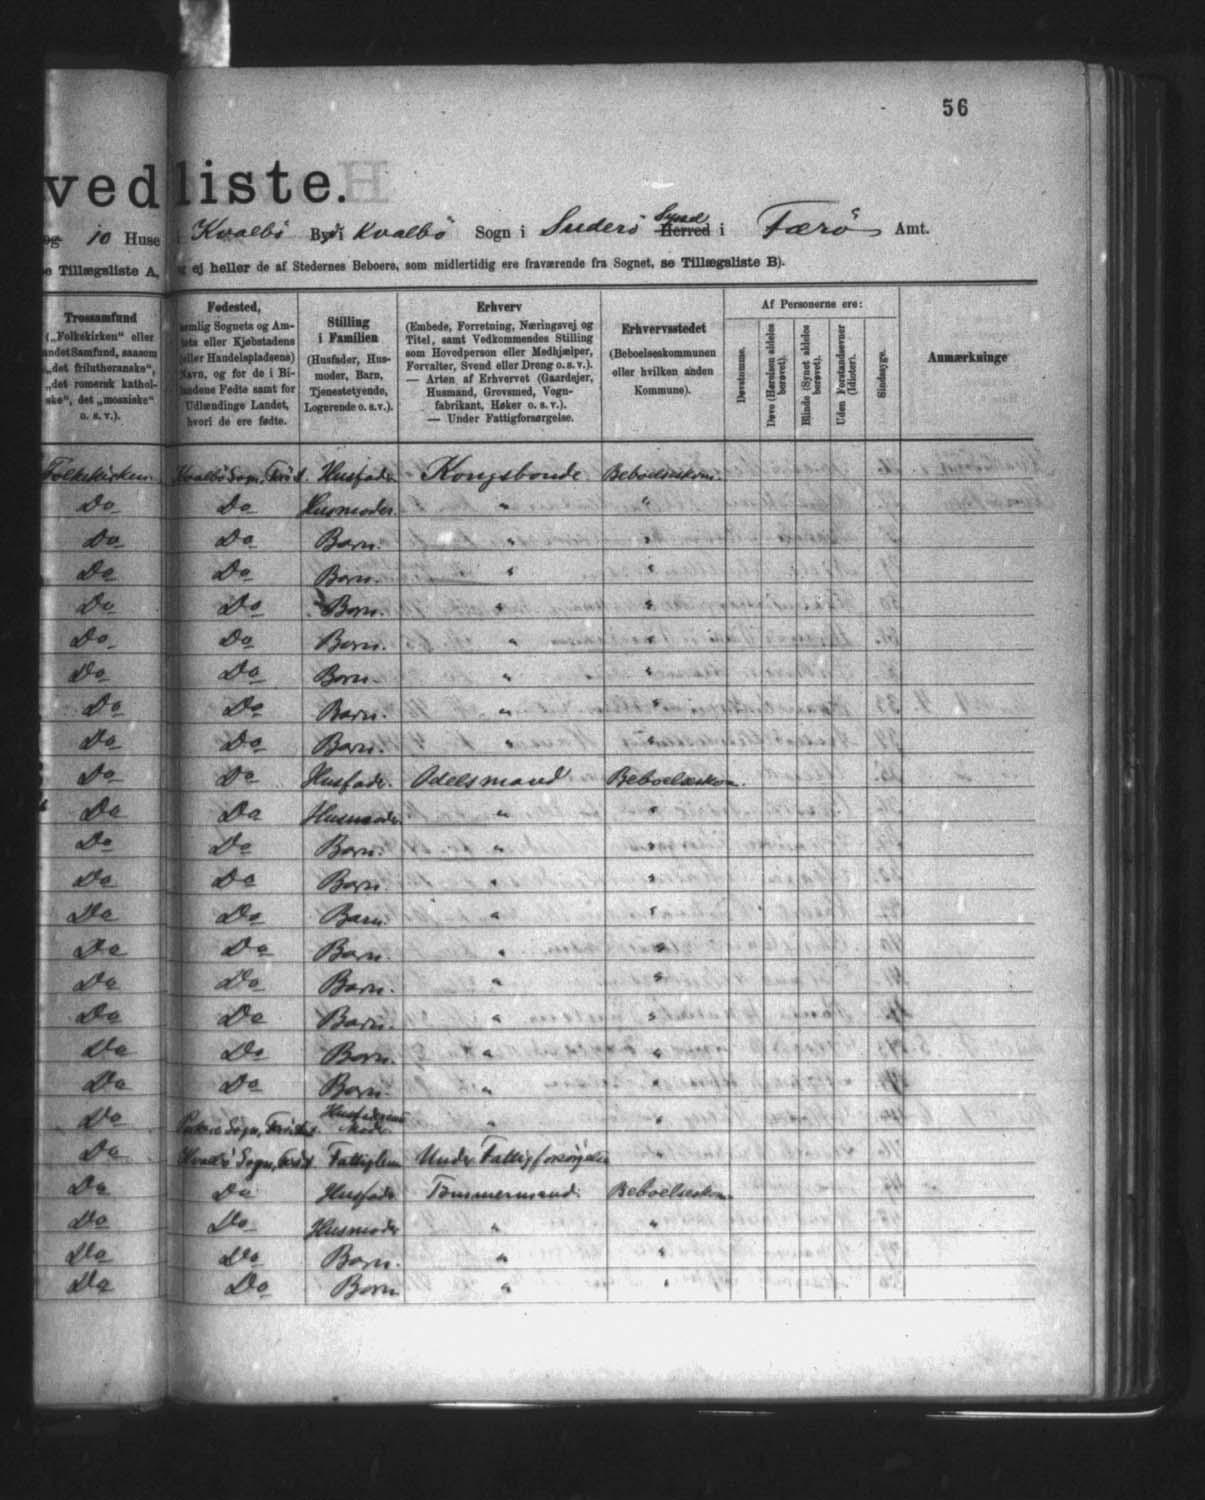 56
vedliste.
og 10 Huse i Kvalbö By i Kvalbö Sogn i Suderö Syssel Herred i Færö Amt.
e Tillægsliste A, og ej heller de af Stedernes Beboere, som midlertidig ere fraværende fra Sognet, se Tillægsliste B).
Trossamfund
(„Folkekirken“ eller
andet Samfund, saasom
„det frilutheranske“,
„det romersk kathol-
ske“, det „mosaiske“
o. s. v.).
Fødested,
nemlig Sognets og Am-
tets eller Kjøbstadens
(eller Handelspladsens)
Navn, og for de i Bi-
landene Fødte samt for
Udlændinge Landet,
hvori de ere fødte.
Stilling
i Familien
(Husfader, Hus-
moder, Barn,
Tjenestetyende,
Logerende o. s. v.).
Erhverv
(Embede, Forretning, Næringsvej og
Titel, samt Vedkommendes Stilling
som Hovedperson eller Medhjælper,
Forvalter, Svend eller Dreng o. s. v.).
— Arten af Erhvervet (Gaardejer,
Husmand, Grovsmed, Vogn-
fabrikant, Høker o. s. v.).
— Under Fattigforsørgelse.
Erhvervsstedet
(Beboelseskommunen
eller hvilken anden
Kommune).
Af Personerne ere:
Døvstumme.
Døve (Hørelsen aldeles
berøvet).
Blinde (Synet aldeles
berøvet).
Uden Forstandsevner
(Idioter).
Sindssyge.
Anmærkninge
Folkekirken Kvalbö Sogn, Færöst Husfader Kongsbonde Beboelseskom.
Do Do Husmoder. " "
Do Do Barn. " "
Do Do Barn. " "
Do Do Barn. " "
Do Do Barn. " "
Do Do Barn. " "
Do Do Barn. " "
Do Do Barn. " "
Do Do Husfader. Odelsmand Beboelseskom.
Do Do Husmoder " "
Do Do Barn. " "
Do Do Barn " "
Do Do Barn. " "
Do Do Barn. " "
Do Do Barn. " "
Do Do Barn. " "
Do Do Barn. " "
Do Do Barn. " "
Do Sogn, Husfaderens Moder " "
Do Kvalbö Sogn, Færöst Fattiglem Under Fattigforsörgelse
Do Do Husfader Tømmermand Beboelseskom
Do Do Husmoder " "
Do Do Barn. " "
Do Do Barn " "